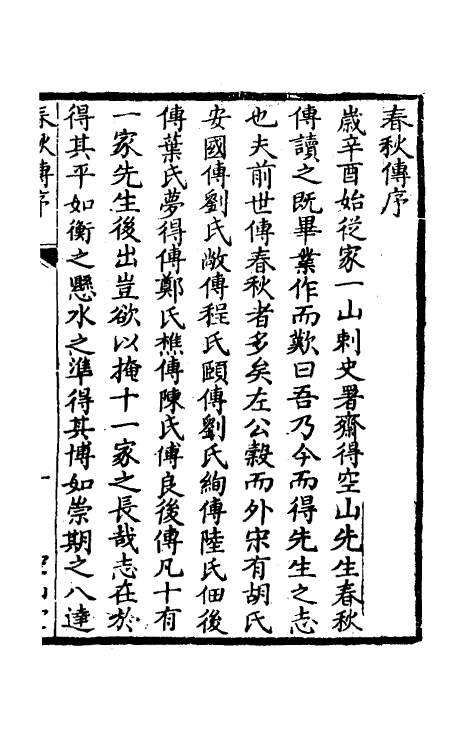 春秋傳序
歲辛酉始從家一山刺史署齋得空山先生春秋
傳讀之既畢業作而歎曰吾乃今而得先生之志
也夫前世傳春秋者多矣左公穀而外宋有胡氏
安國傳劉氏敞傳程氏頤傳劉氏絢傳陸氏佃後
傳葉氏夢得傳鄭氏樵傳陳氏傅良後傳凡十有
一家先生後出豈欲以掩十一家之長哉志在於
得其平如衡之懸水之準得其博如崇期之八達
春秋傳序
一